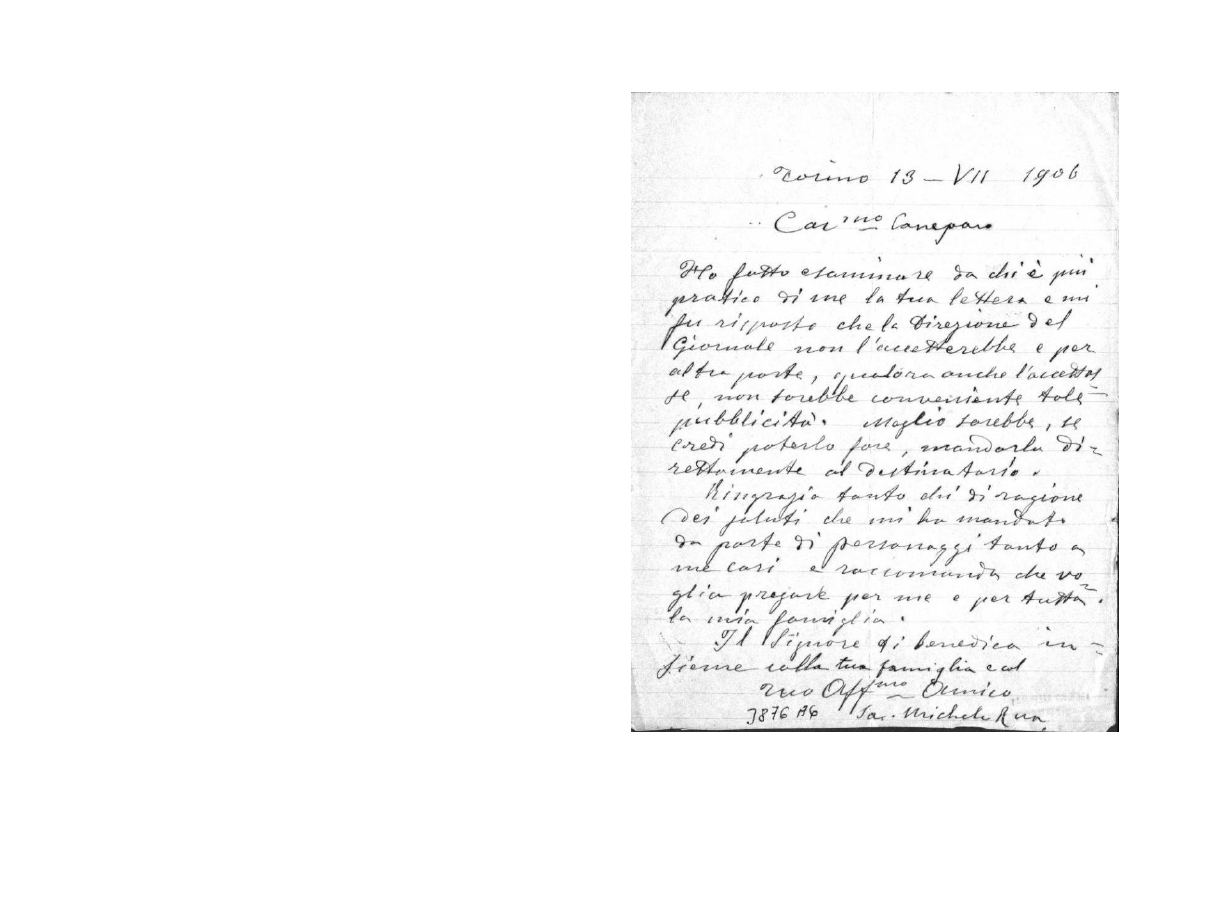 Torino 13 – VII 1906
Car.mo Caneparo
Ho fatto esaminare da chi è più
pratico di me la tua lettera e mi
fu risposto che la Direzione del
Giornale non l'accetterebbe e per
altra parte, qualora anche l'accettas=
se, non sarebbe conveniente tale
pubblicità. Meglio sarebbe, se
credi poterlo fare, mandarla di=
rettamente al destinatario.
Ringrazia tanto chi di ragione
dei saluti che mi ha mandato
da parte di personaggi tanto a
me cari e raccomanda che vo=
glia pregare per me e per tutta
la mia famiglia.
Il Signore ti benedica in=
sieme colla tua famiglia e col
tuo Aff.mo Amico
Sac. Michele Rua
3876 A6